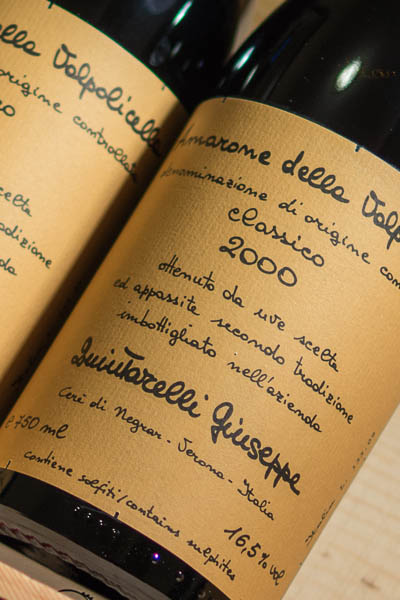 ella Valpolicella
origine controllata
scelta
tradizione
Amarone della Valp
denominazione di origine con
classico
2000
ottenuto da uve scelte
ed appassite secondo tradizione
imbottigliato nell'azienda
Quintarelli Giuseppe
Cerè di Negrar - Verona - Italia
750 ml
16,5% vol
contiene solfiti/contains sulphites